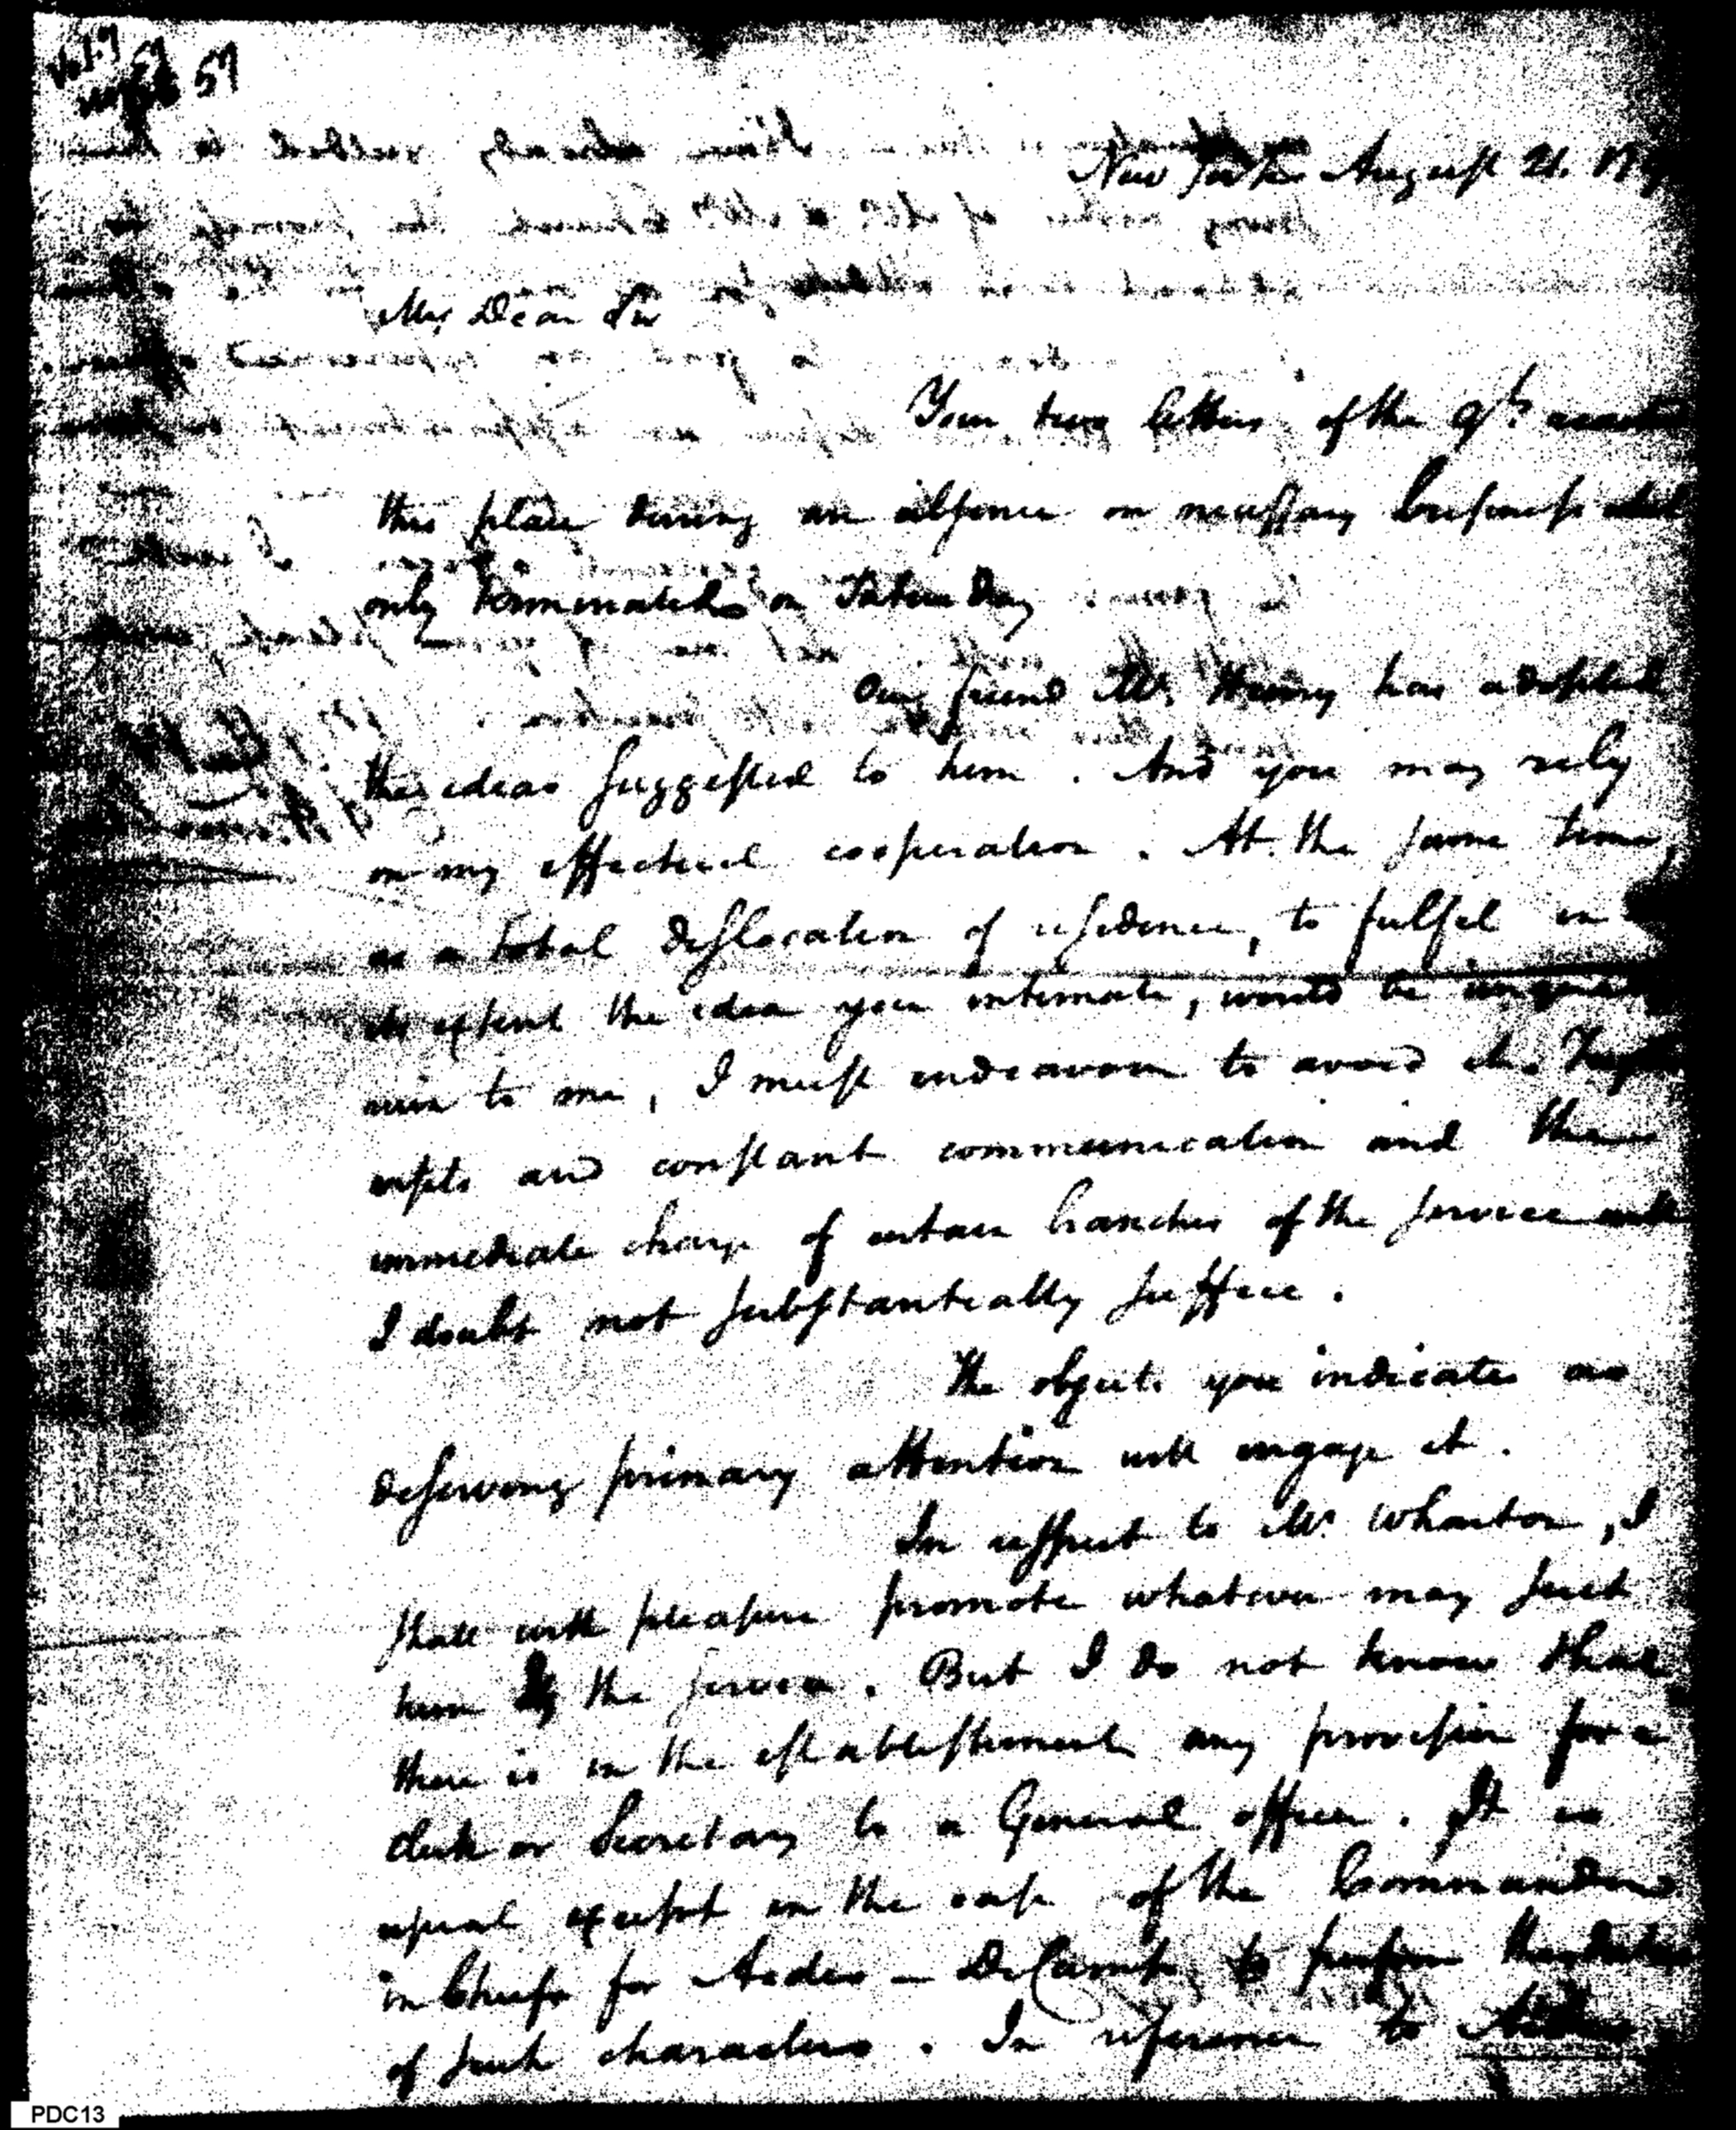 57
New York August 21. 179
My Dear Sir
Your two letters of the 9th.
this place during an absence on necessary business which
only terminated on Saturday
Our friend Mc. Henry has adopted
the ideas suggested to him. And you may rely
on my effectual cooperation. At the same time,
as a total dislocation of residence, to fulfil in
its extent the idea you intimate, would be
to me, I must endeavour to avoid it.
and constant communication and the
immediate charge of certain branches of the service will
I doubt not substantially suffice.
The objects you indicate as
deserving primary attention will engage it.
In respect to Mr. Wharton, I
shall with pleasure promote whatever may suit
him & the service. But I do not know that
there is in the establishment any provision for a
clerk or Secretary to a General officer. It is
usual except in the case of the Commander
in Chief for Aides-De Camp to perform the duties
of such characters. In reference to
PDC13